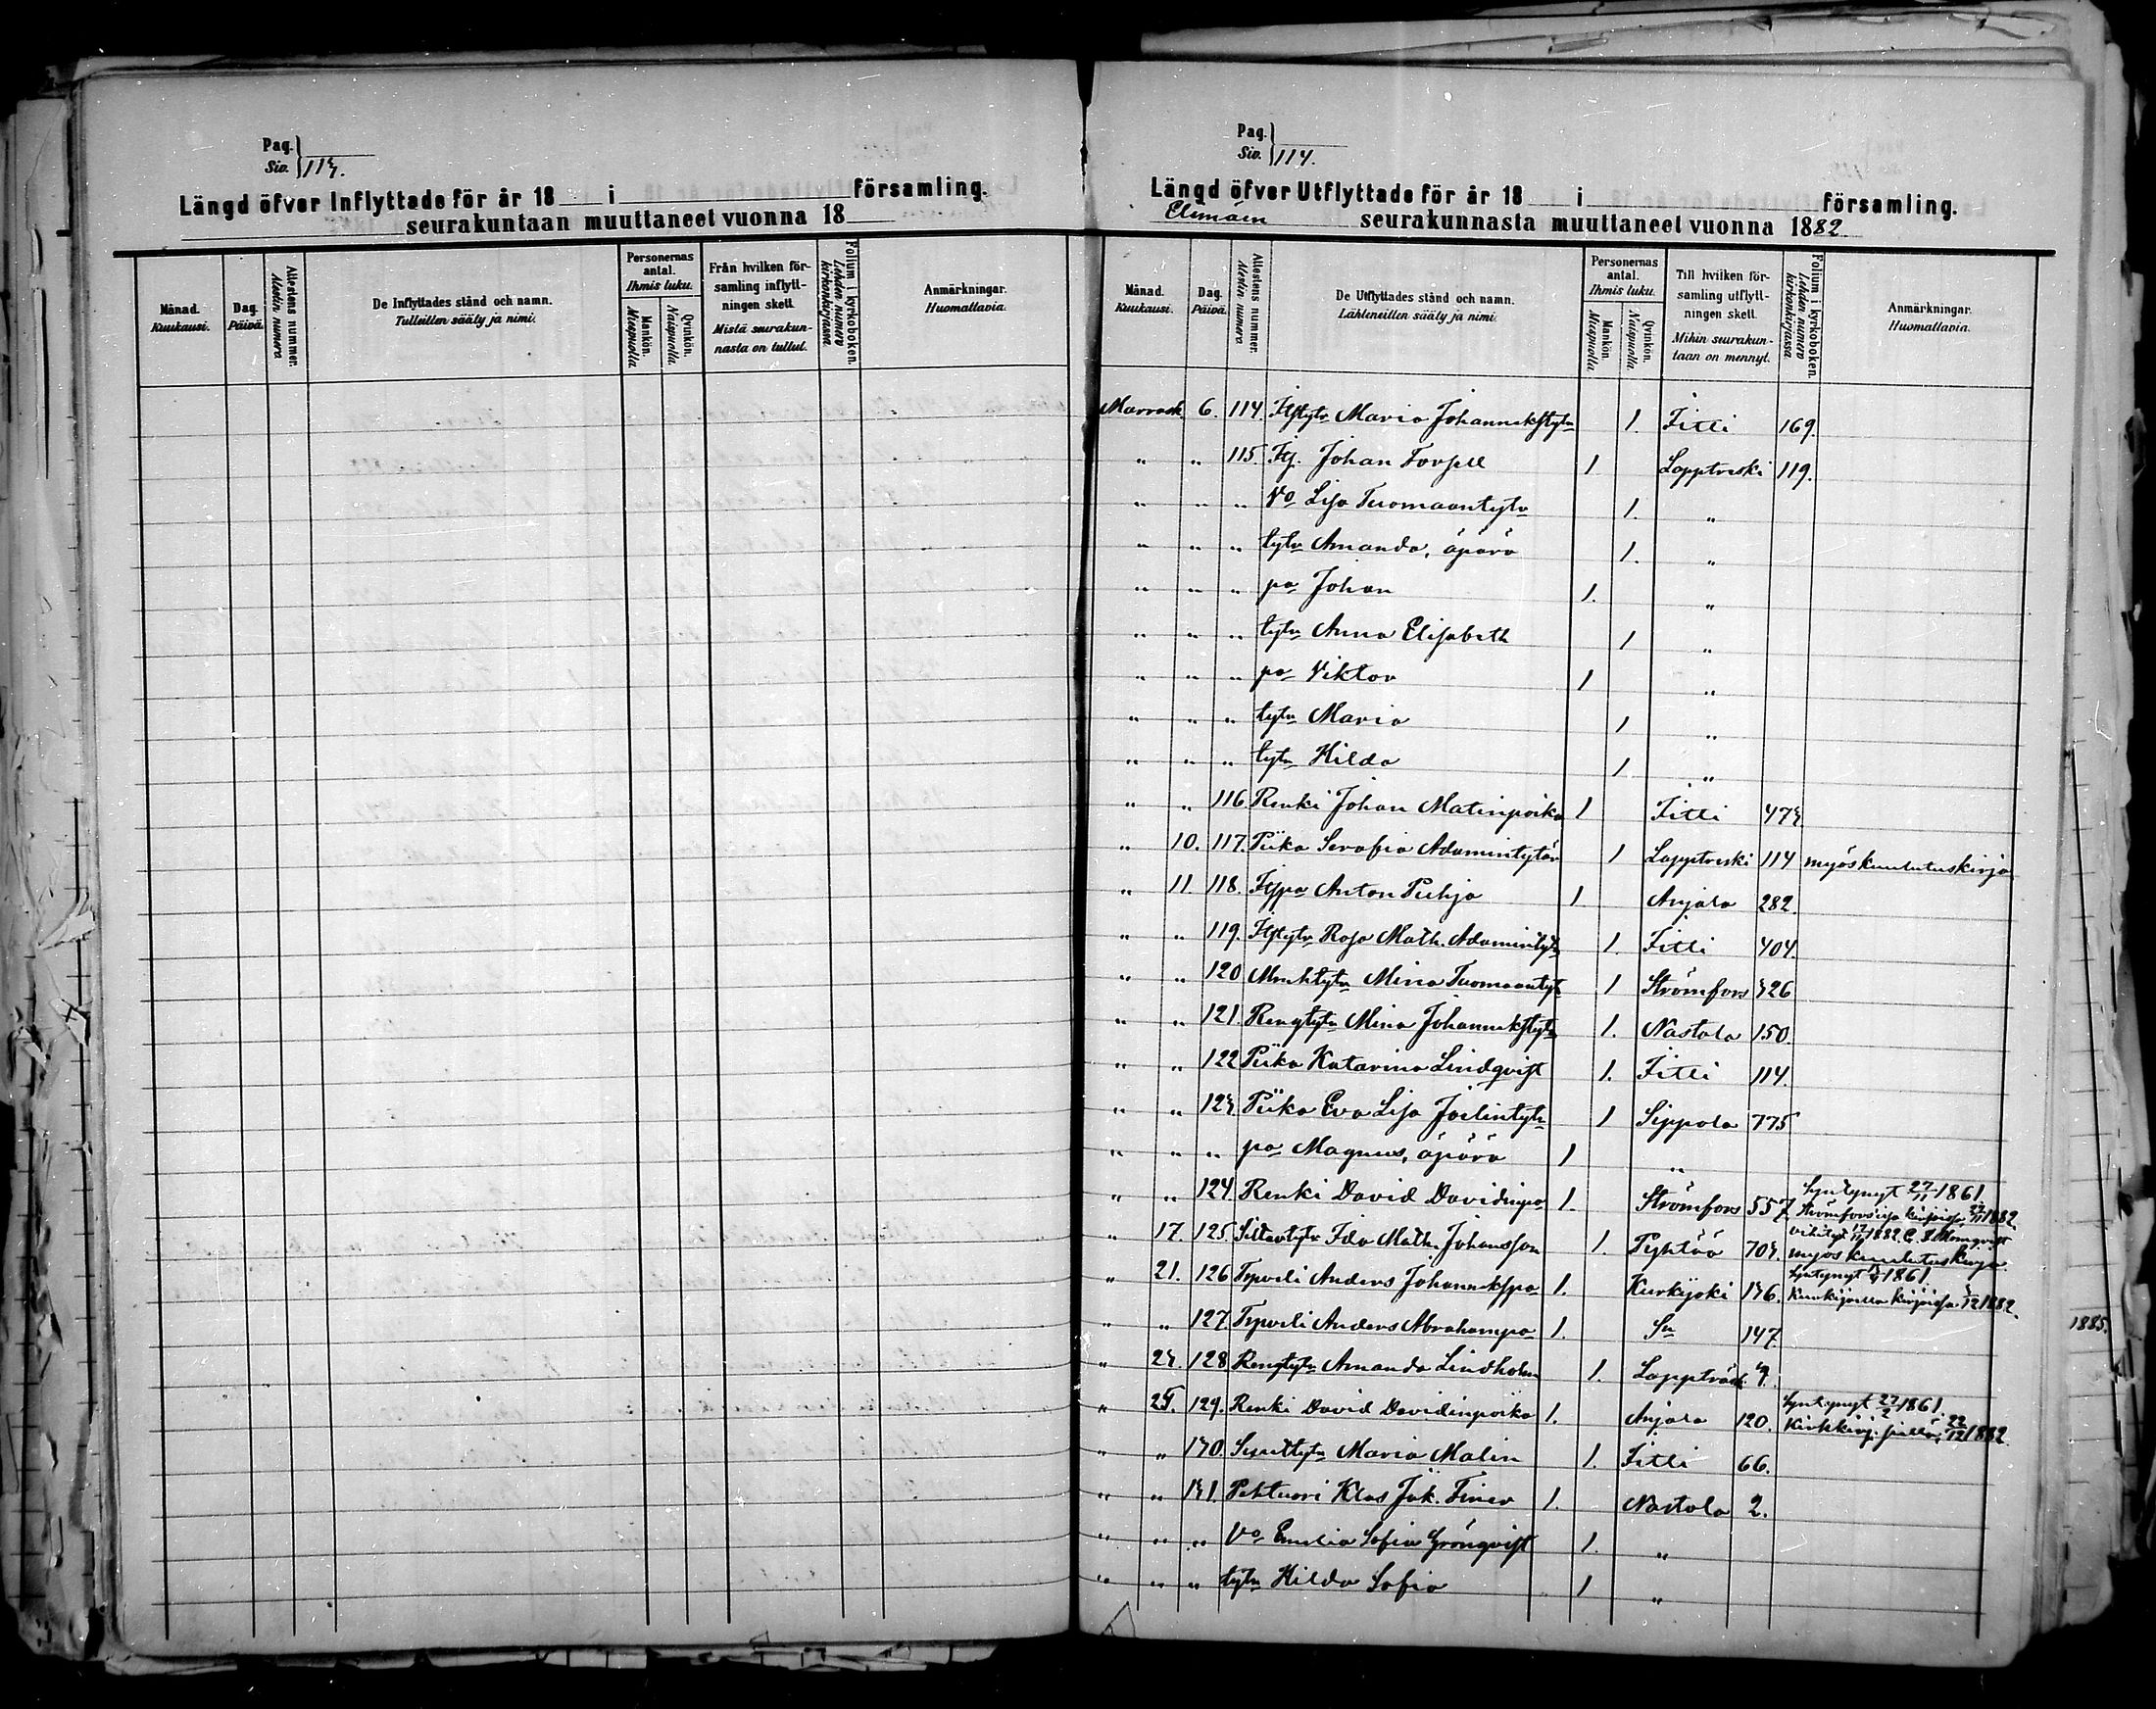 Pag.
Siv. 113.
Längd öfver Inflyttade för år 18 i församling.
seurakuntaan muuttaneet vuonna 18
Månad. Kuukausi.
Dag. Päivä.
Attestens nummer. Alestin numera
De Inflyttades stånd och namn.
Tulleitten sääty ja nimi.
Personernas antal.
Ihmis luku.
Mankön. Miespuolia
Qvinkön. Naispuolia.
Från hvilken för-
samling inflytt-
ningen skett.
Mistä seurakun-
nasta on tullut.
Folium i kyrkoboken.
Lehden numero kirkonkirjassa
Anmärkningar.
Huomattavia.
Pag.
Siv. 114.
Längd öfver Utflyttade för år 18 i församling.
Elimäen seurakunnasta muuttaneet vuonna 1882
Månad. Kuukausi.
Dag. Päivä.
Attestens nummer. Alestin numera
De Utflyttades stånd och namn.
Lähteneitten sääty ja nimi.
Personernas antal.
Ihmis luku.
Mankön. Miespuolia
Qvinkön. Naispuolia.
Till hvilken för-
samling utflytt-
ningen skett.
Mihin seurakun-
taan on mennyt.
Folium i kyrkoboken.
Lehden numero kirkonkirjassa
Anmärkningar.
Huomattavia.
Marrask. 6. 114. Itstytr Maria Johannekstytr 1. Iitti 169.
" " 115. Itj. Johan Forsell 1 Lapptreski 119.
" " " Vo Lisa Tuomaantytr 1. "
" " " tytr Amanda, äpärä 1. "
" " " pa Johan 1. "
" " " tytr Anna Elisabeth 1 "
" " " pa Viktor 1 "
" " " tytr Maria 1 "
" " " tytr Hilda 1 "
" " 116 Renki Johan Matinpoika 1 Iitti 473.
" 10. 117. Piika Serafia Adamintytär 1 Lapptreski 114 myös kuulutuskirja
" 11. 118. Itspa Anton Puhjo 1. Anjala 282.
" " 119. Itstytr Rosa Math. Adamintytr 1. Iitti 404.
" " 120 Mina Tuomaantyt 1 Strömfors 326
" " 121. Rengtytr Mina Johannekstytr 1. Nastola 150.
" " 122 Piika Katarina Lindqvist 1. Iitti 114.
" " 123. Piika Eva Lisa Joelintytr 1 Sippola 775
" " " pa Magnus, äpärä 1 "
" " 124 Renki David Davidinpa 1. Strömfors 557. Syntynyt 27/11 1861
Strömforsissa kirjoissa 1882.
" 17. 125. Siltavtytr Ida Math. Johansson 1. Pyhtää 703. vihityt 17/11 1882 C.
myös kuulutuskirja.
" 21. 126 Torpveli Anders Johanneksspa 1. Kurkijoki 136. Syntynyt 1861.
Kurkijoella kirjoissa 1882.
" " 127. Torpveli Anders Abrahampa 1. Sn 147.
" 23. 128 Rengtytr Amanda Lindholm 1. Lappträsk. 9.
" 25. 129. Renki David Davidinpoika 1. Anjala 120. Syntynyt 27/2 1861.
22/12 1882
" " 130. Suuttytr Maria Malin 1. Iitti 66.
" " 131. Pehtuori Klas Jak. Finer 1. Nastola 2.
" " " Vo Emilia Sofia Grönqvist 1. "
" " " tytr Hilda Sofia 1 "
1885.